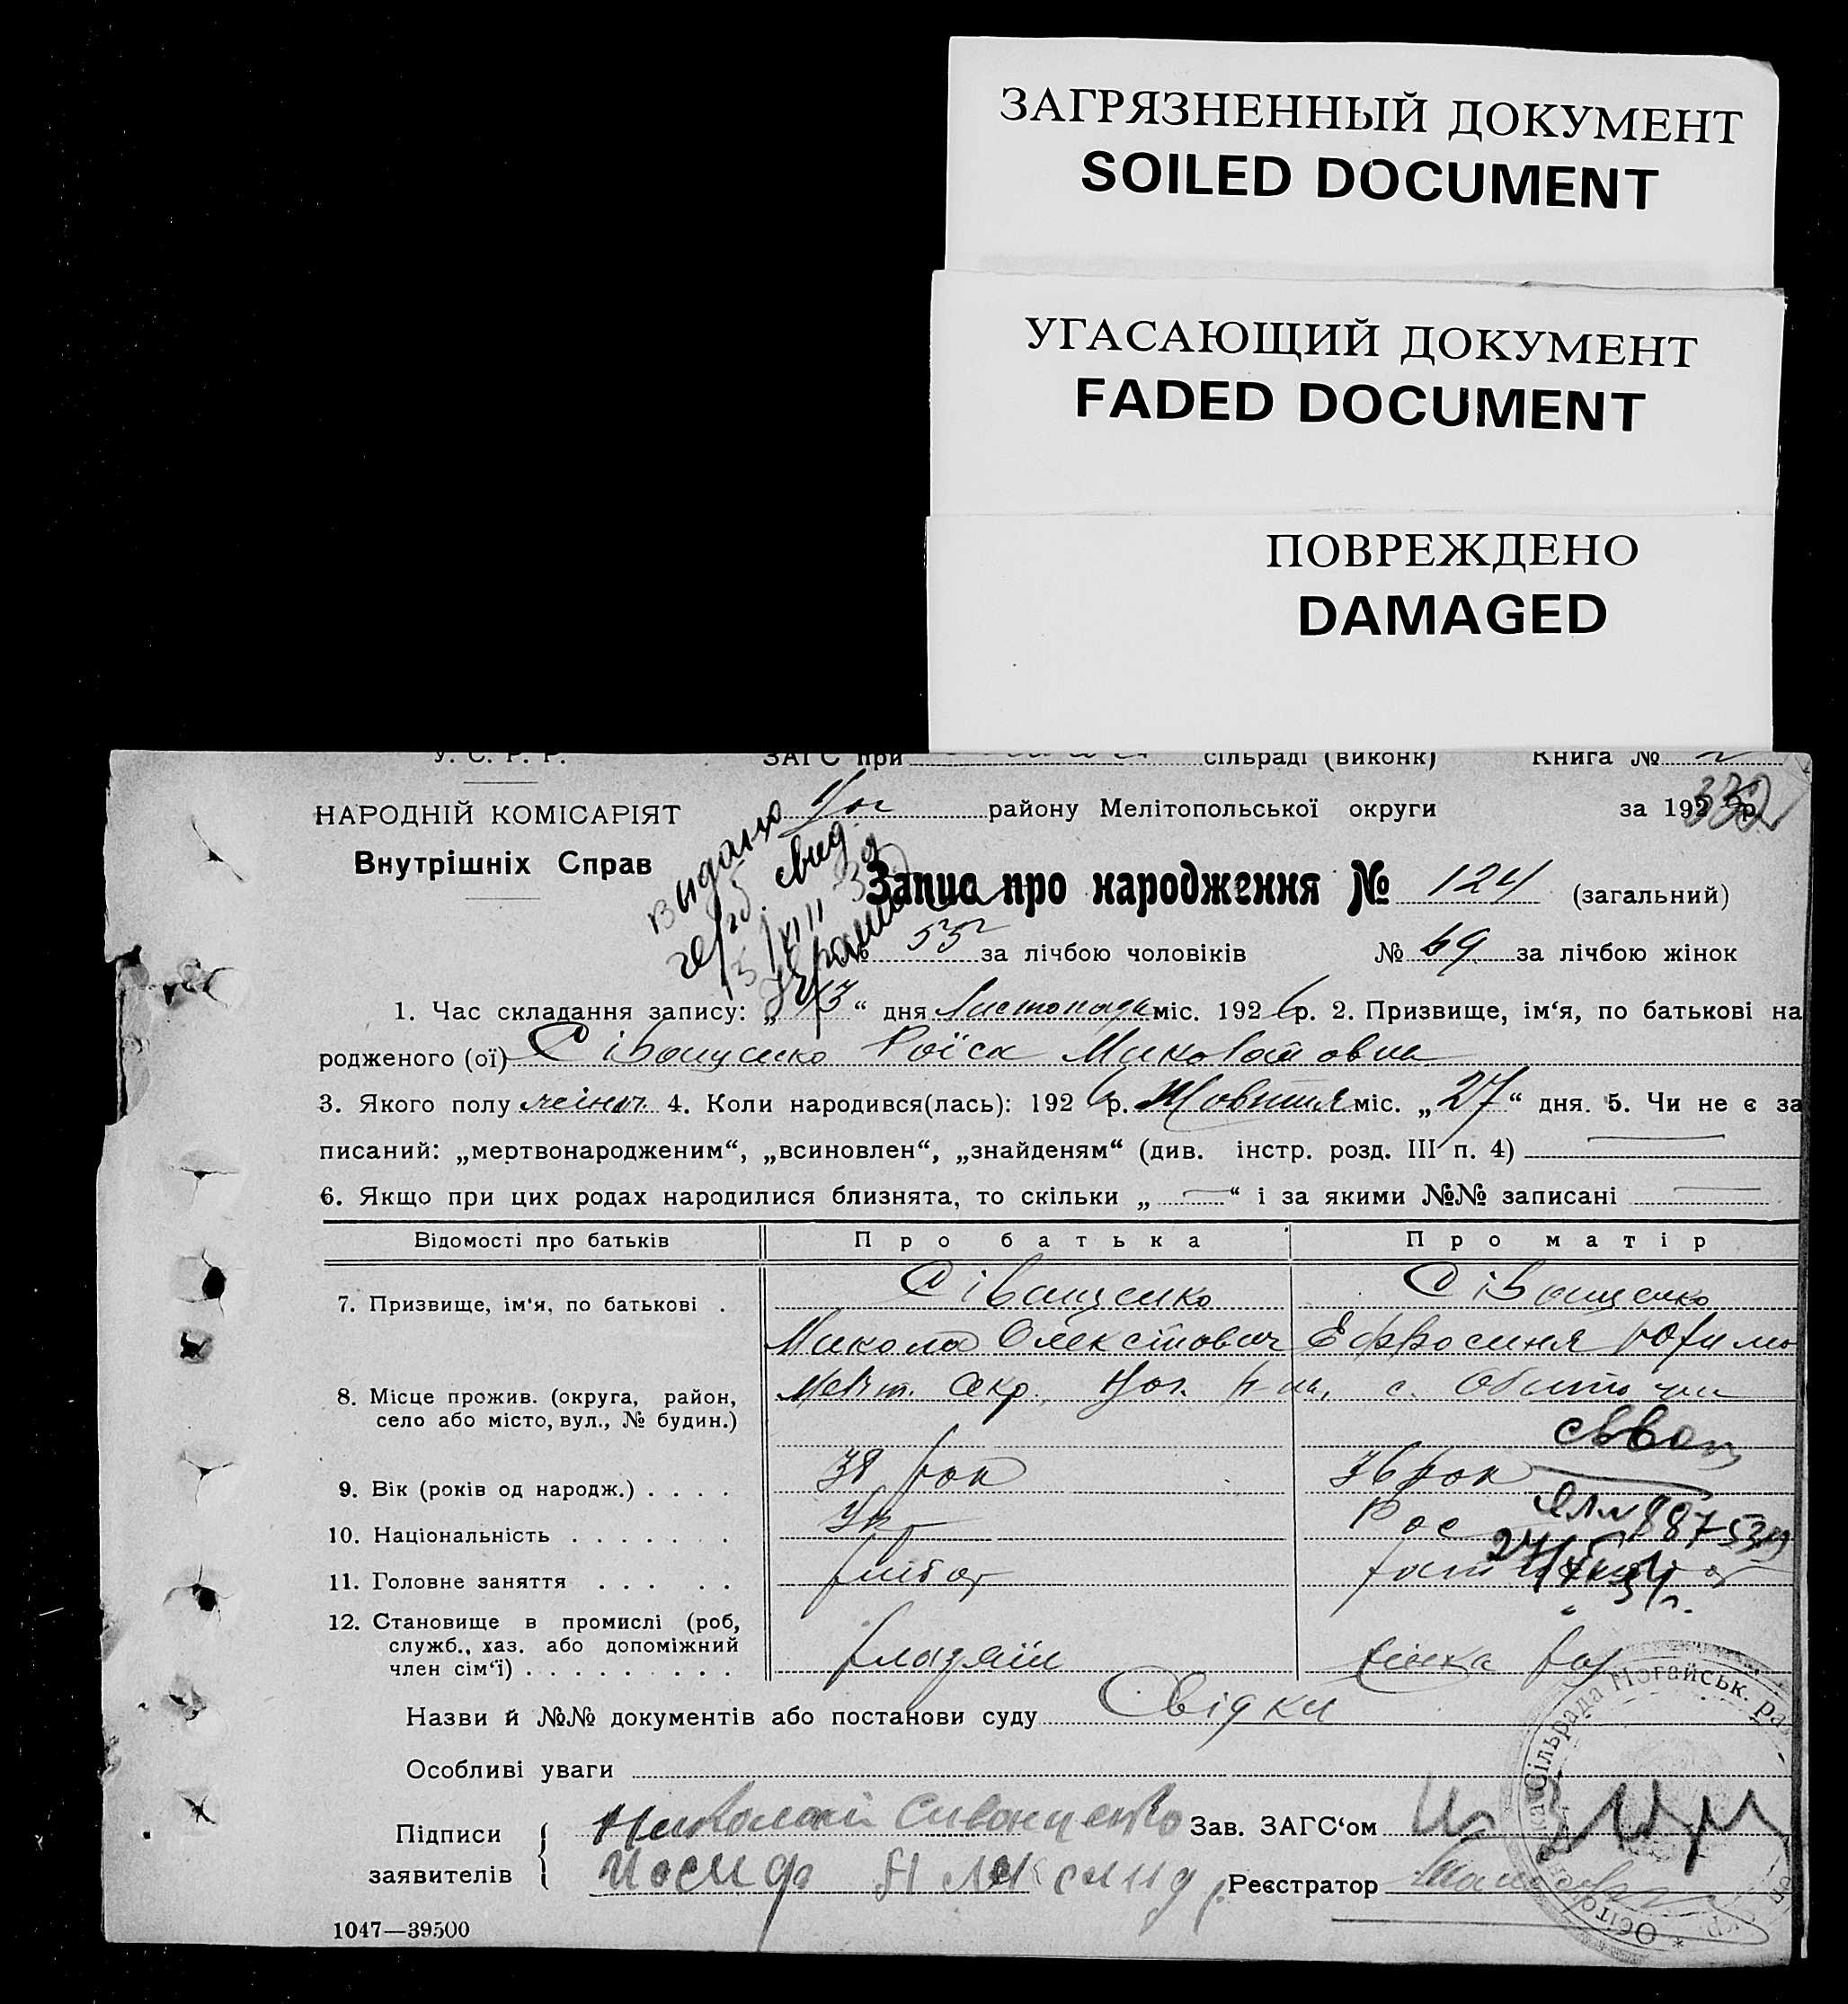 ЗАГРЯЗНЕННЫЙ ДОКУМЕНТ
SOILED DOCUMENT
УГАСАЮЩИЙ ДОКУМЕНТ
FADED DOCUMENT
ПОВРЕЖДЕНО
DAMAGED
У. С. Р. Р. ЗАГС при сільраді (виконк) Книга №
НАРОДНІЙ КОМІСАРІЯТ Ног району Мелітопольської округи за 192 р.
Внутрішніх Справ
Запис про народження № 124 (загальний)
№ 55 за лічбою чоловіків № 69 за лічбою жінок
1. Час складання запису: „ 13 “ дня Листопада міс. 1926 р. 2. Призвище, ім‘я, по батькові на
родженого (ої) Сіващенко Раїса Миколаївна
3. Якого полу жіноч 4. Коли народився(лась): 1926 р. Жовтня міс. „ 27 “ дня. 5. Чи не є за
писаний: „мертвонародженим“, „всиновлен“, „знайденям“ (див. інстр. розд. III п. 4)
6. Якщо при цих родах народилися близнята, то скільки „ — “ і за якими №№ записані —
Відомості про батьків Про батька Про матір
7. Призвище, ім‘я, по батькові . Сіващенко Сіващенко
Микола Олексієвич Ефросиня
8. Місце прожив. (округа, район, Меліт. окр. Ног. р-на, с. Обиточна
село або місто, вул., № будин.)
9. Вік (років од народж.) . . . . 38 рок 36 рок
10. Національність . . . . . . . Укр Рос
11. Головне заняття . . . . .
12. Становище в промислі (роб,
служб., хаз. або допоміжний
член сім‘ї) . . . . . . . . . хазяїн жінка
Назви й №№ документів або постанови суду Свідки
Особливі уваги
Підписи Николай Сиващенко Зав. ЗАГС‘ом
заявителів Иосиф Реєстратор
1047—39500
Сільрада Ногайськ. ра